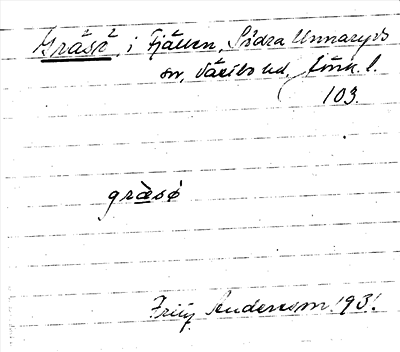 Gräsö, i Fjällen, Södra Unnaryds
sn, Västbo hd, Jönk. l.
103.
gràsö
Fritz Andersson 1931